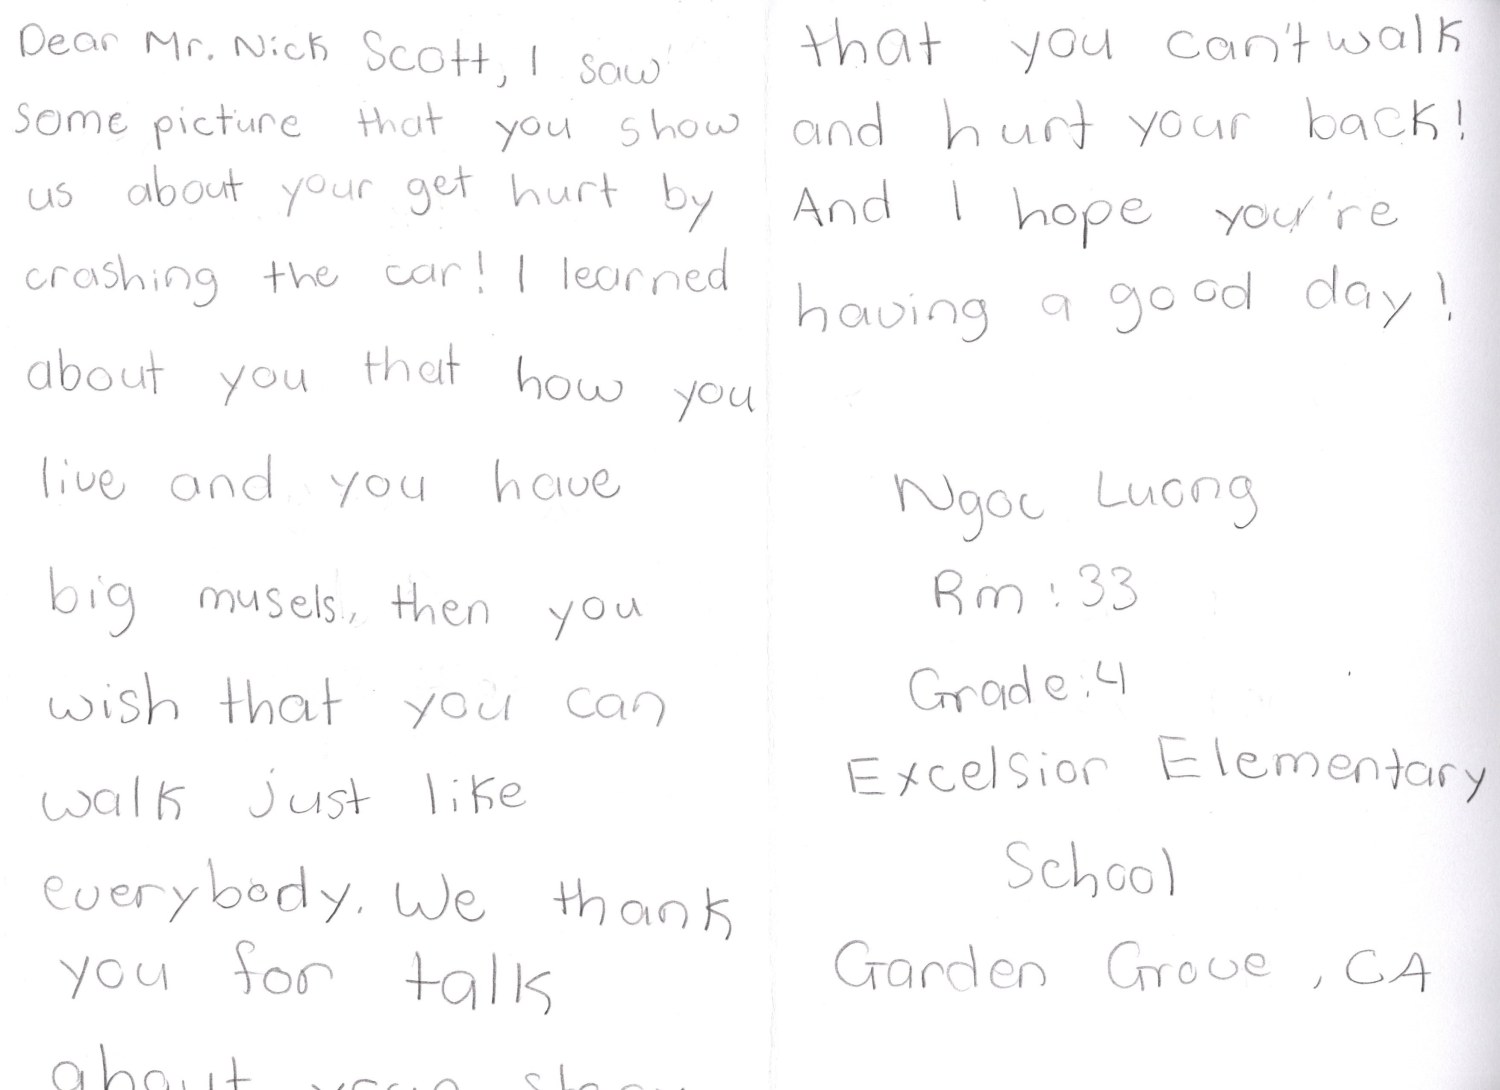 Dear Mr. Nick Scott, I saw
some picture that you show
us about your get hurt by
crashing the car! I learned
about you that how you
live and you have
big musels, then you
wish that you can
walk just like
everybody. We thank
you for talk
about your story
that you can't walk
and hurt your back!
And I hope you're
having a good day!
Ngoc Luong
Rm: 33
Grade: 4
Excelsior Elementary
School
Garden Grove, CA